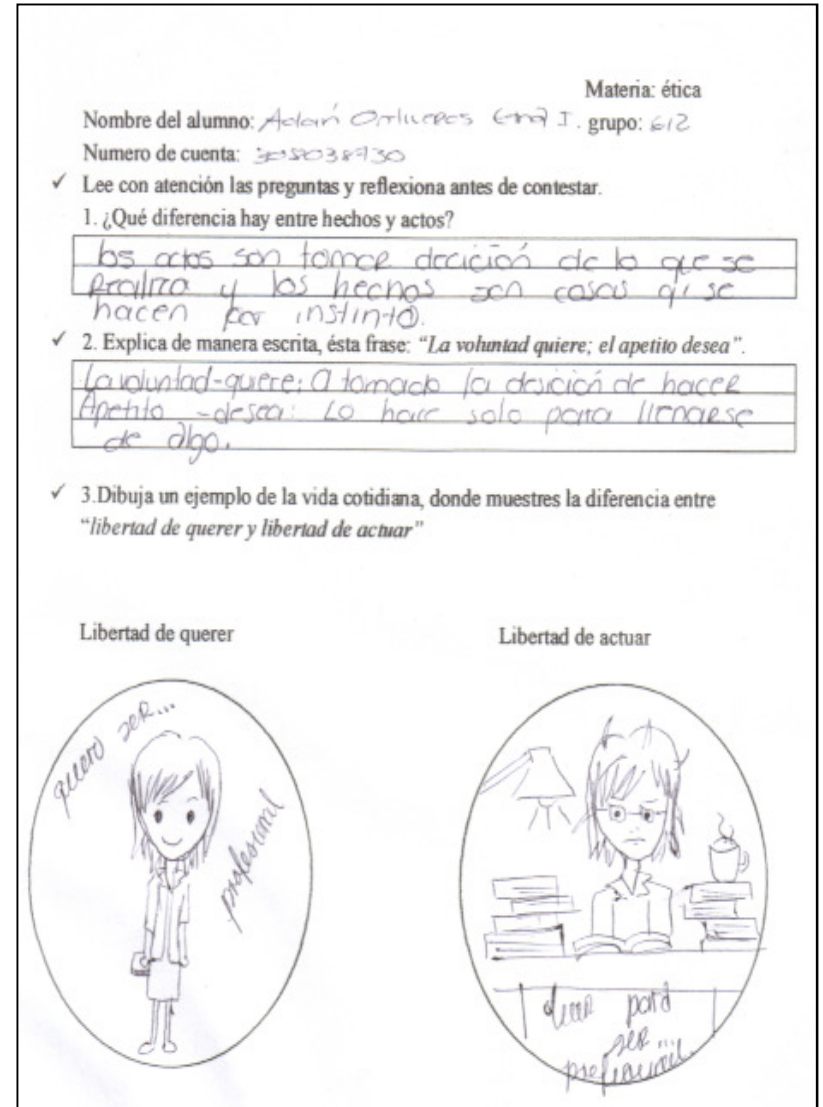 Materia: ética
Nombre del alumno: Adán I. grupo: 612
Numero de cuenta:
✓ Lee con atención las preguntas y reflexiona antes de contestar.
1. ¿Qué diferencia hay entre hechos y actos?
los actos son tomar decición de lo que se
Realiza y los hechos son cosas q' se
hacen por instinto.
✓ 2. Explica de manera escrita, ésta frase: “La voluntad quiere; el apetito desea”.
La voluntad-quiere: A tomado la desición de hacer
Apetito -desea: Lo hace solo para llenarse
de algo.
✓ 3.Dibuja un ejemplo de la vida cotidiana, donde muestres la diferencia entre
“libertad de querer y libertad de actuar”
Libertad de querer
Libertad de actuar
quiero ser...
profesional
para
ser...
profesional.